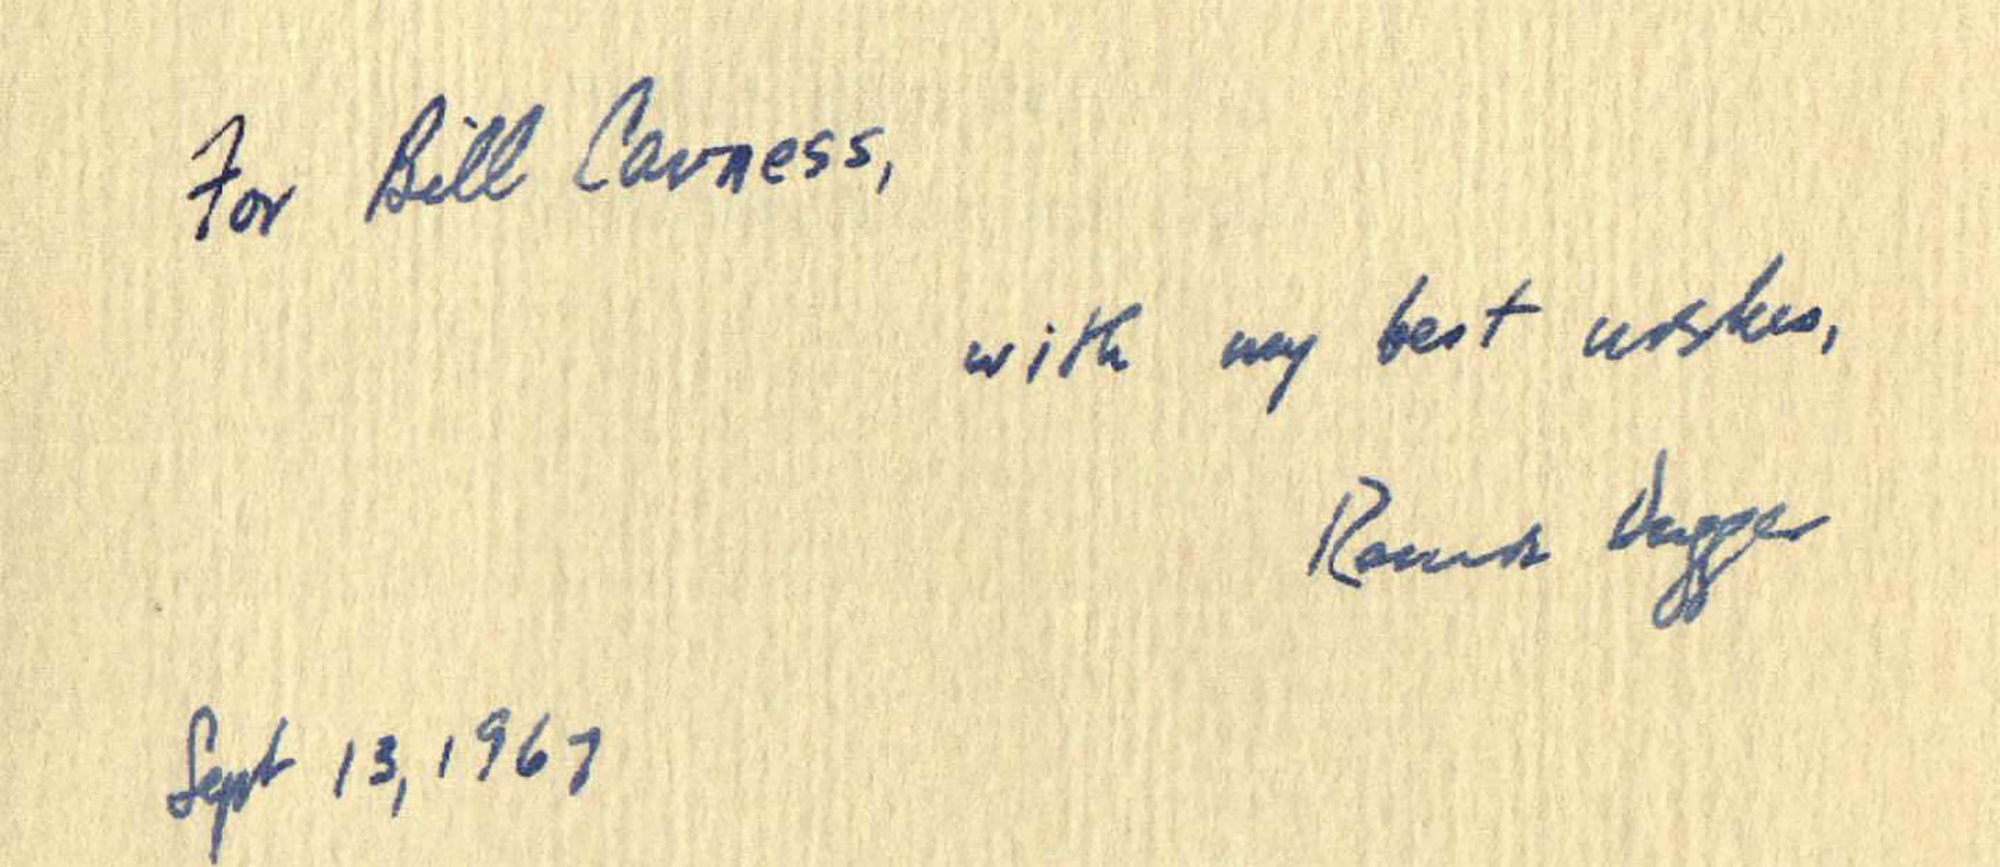 For Bill Cavness,
with my best wishes,
Ronnie Dugger
Sept 13, 1967